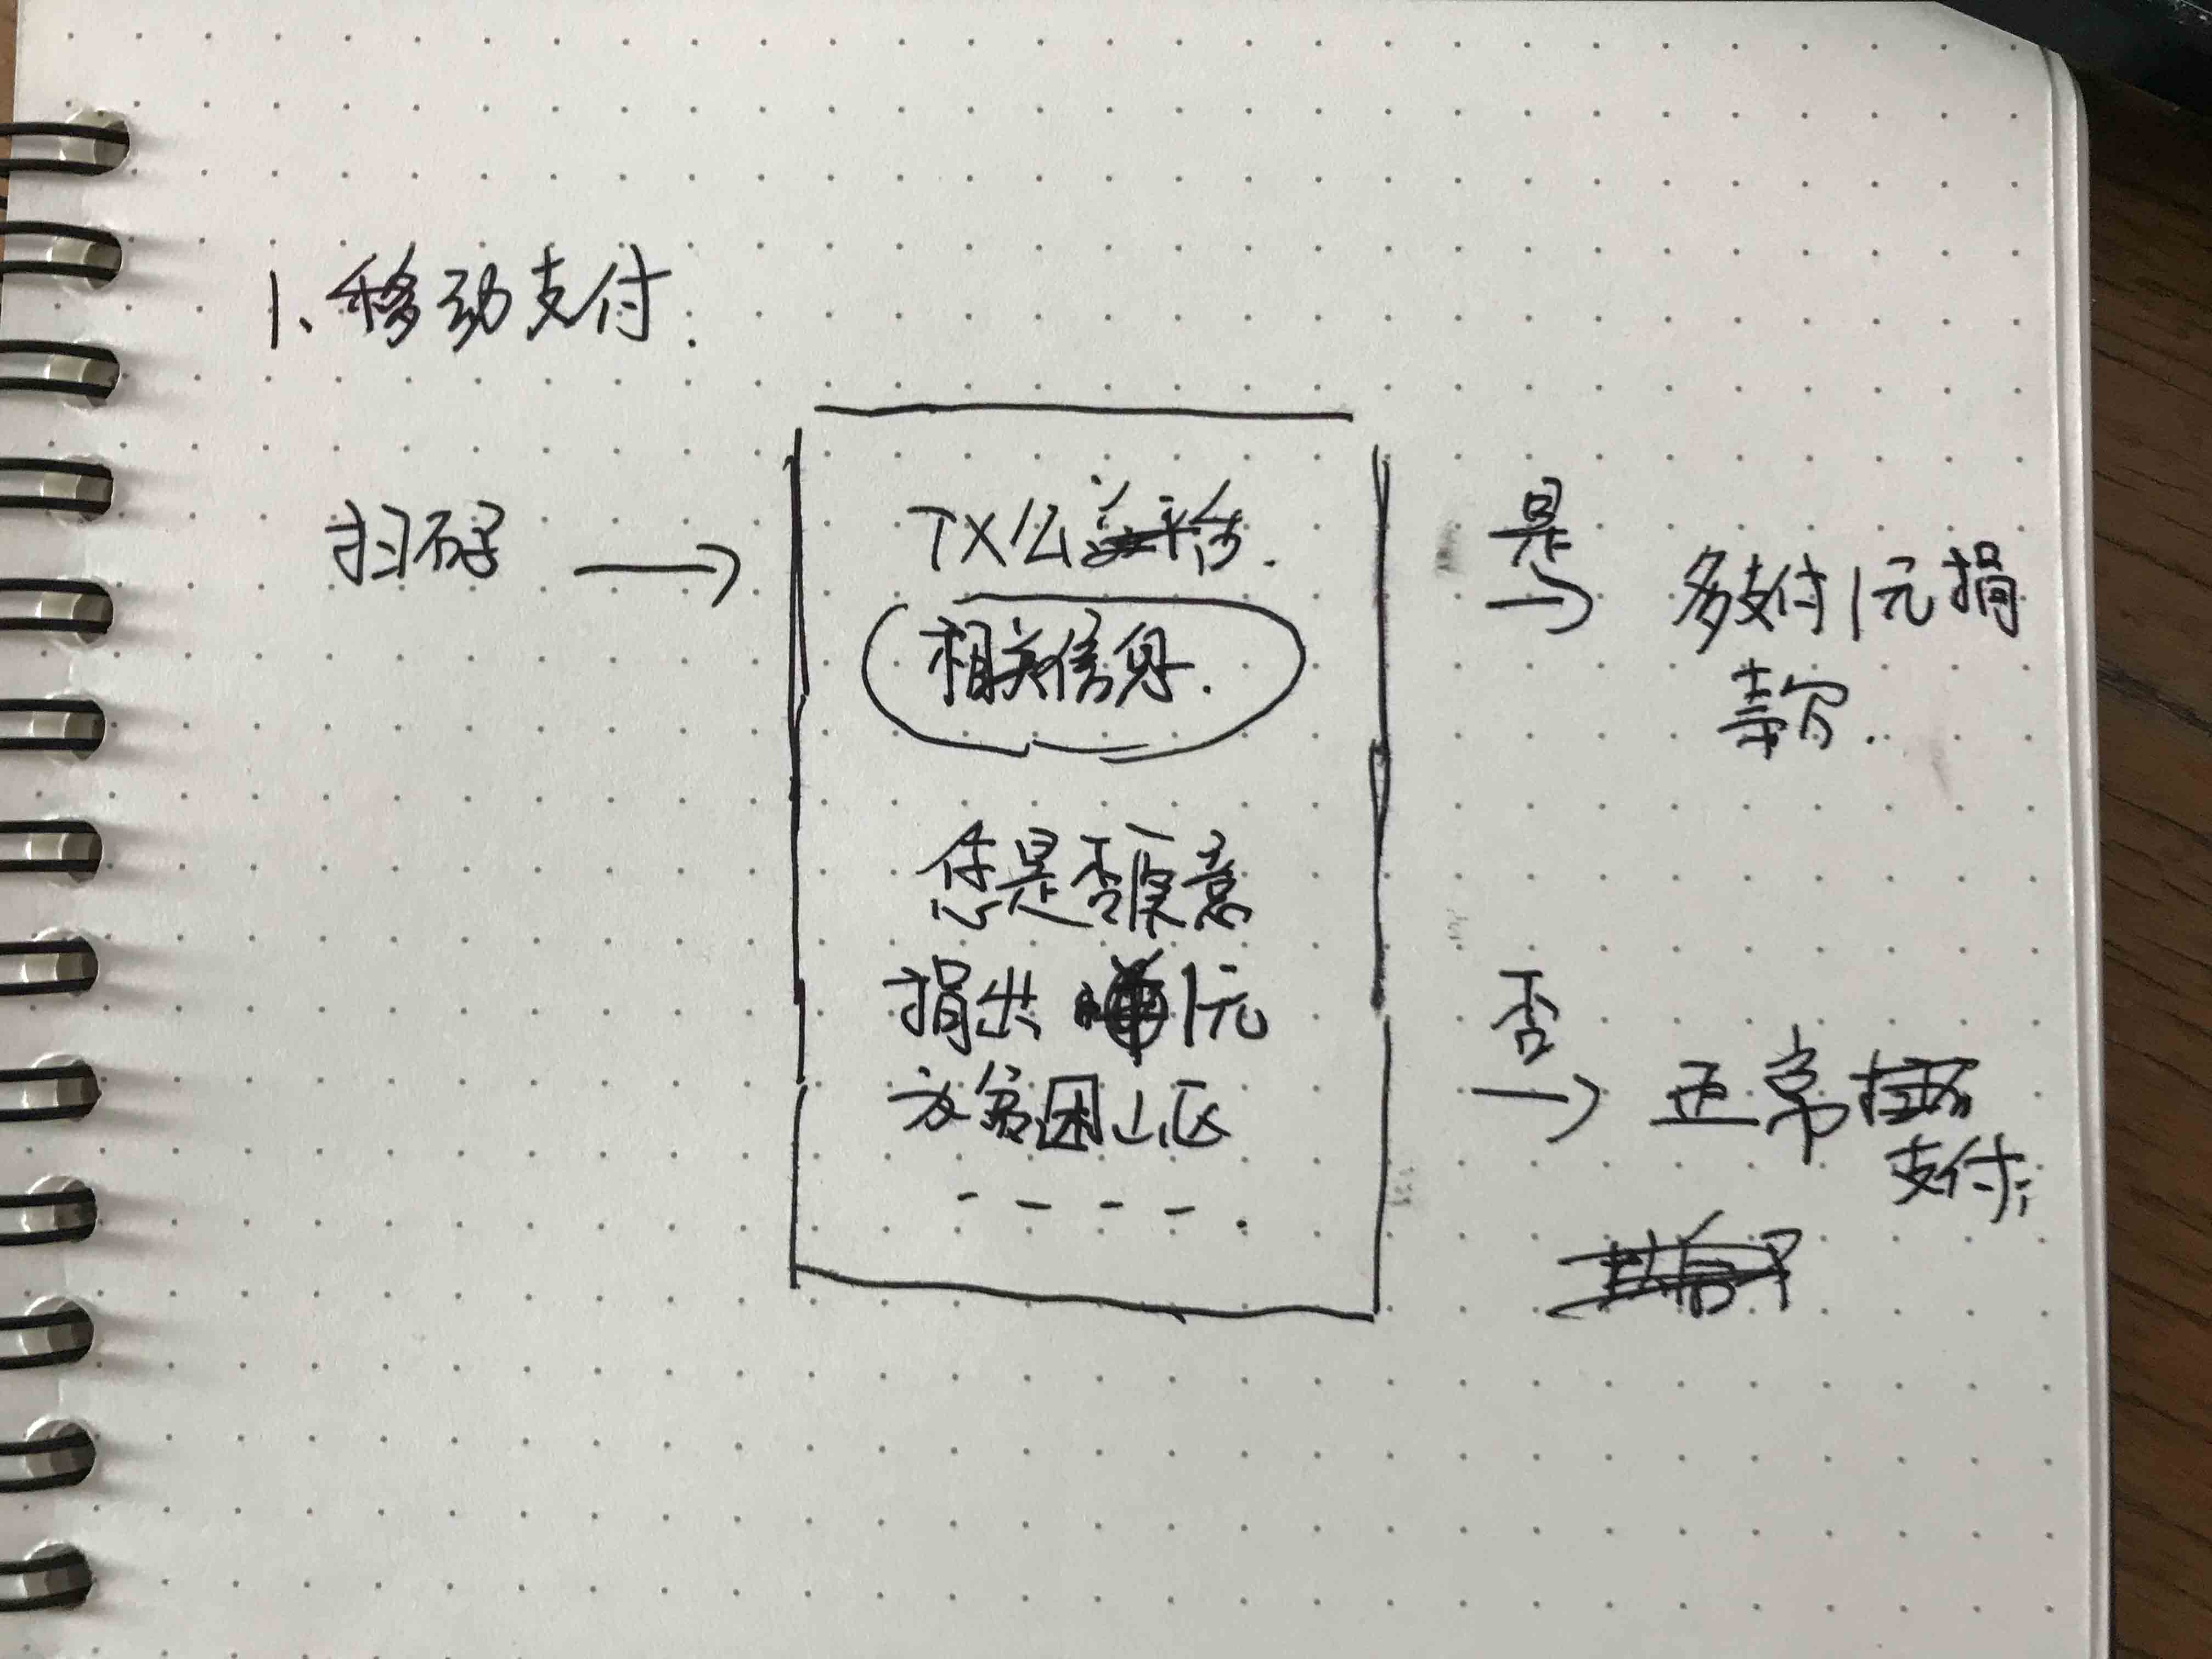 1、移动支付.
扫码
TX公益平台.
相关信息.
您是否愿意
捐出 1元
为贫困山区
是
多支付1元捐
款.
否
正常
支付;